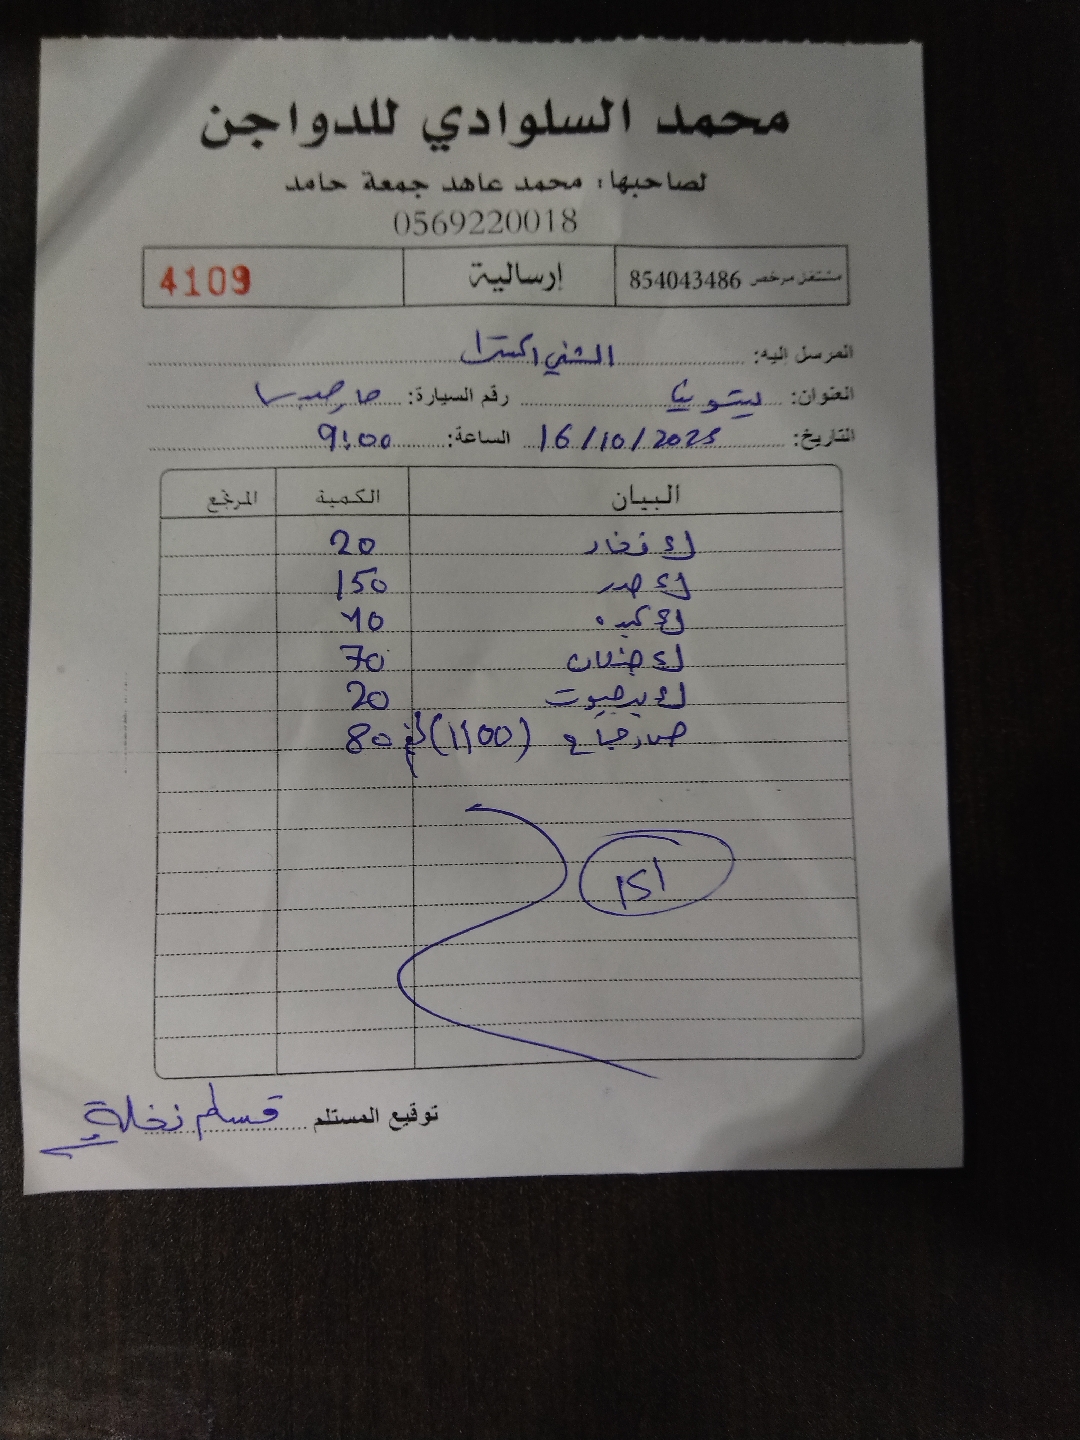 محمد السلوادي للدواجن
لصاحبها: محمد عاهد جمعة حامد
0569220018
مشتغل مرخص 854043486 إرسالية 4109
المرسل إليه: الشني اكسترا
العنوان: بيتونيا رقم السيارة:
التاريخ: 16/10/2025 الساعة: 9:00
البيان الكمية المرتجع
ك فخاد 20
ك صدر 150
ك كبده 10
ك جنحان 70
ك 20
صدر جناح (1100) 80
توقيع المستلم قسام نخلة